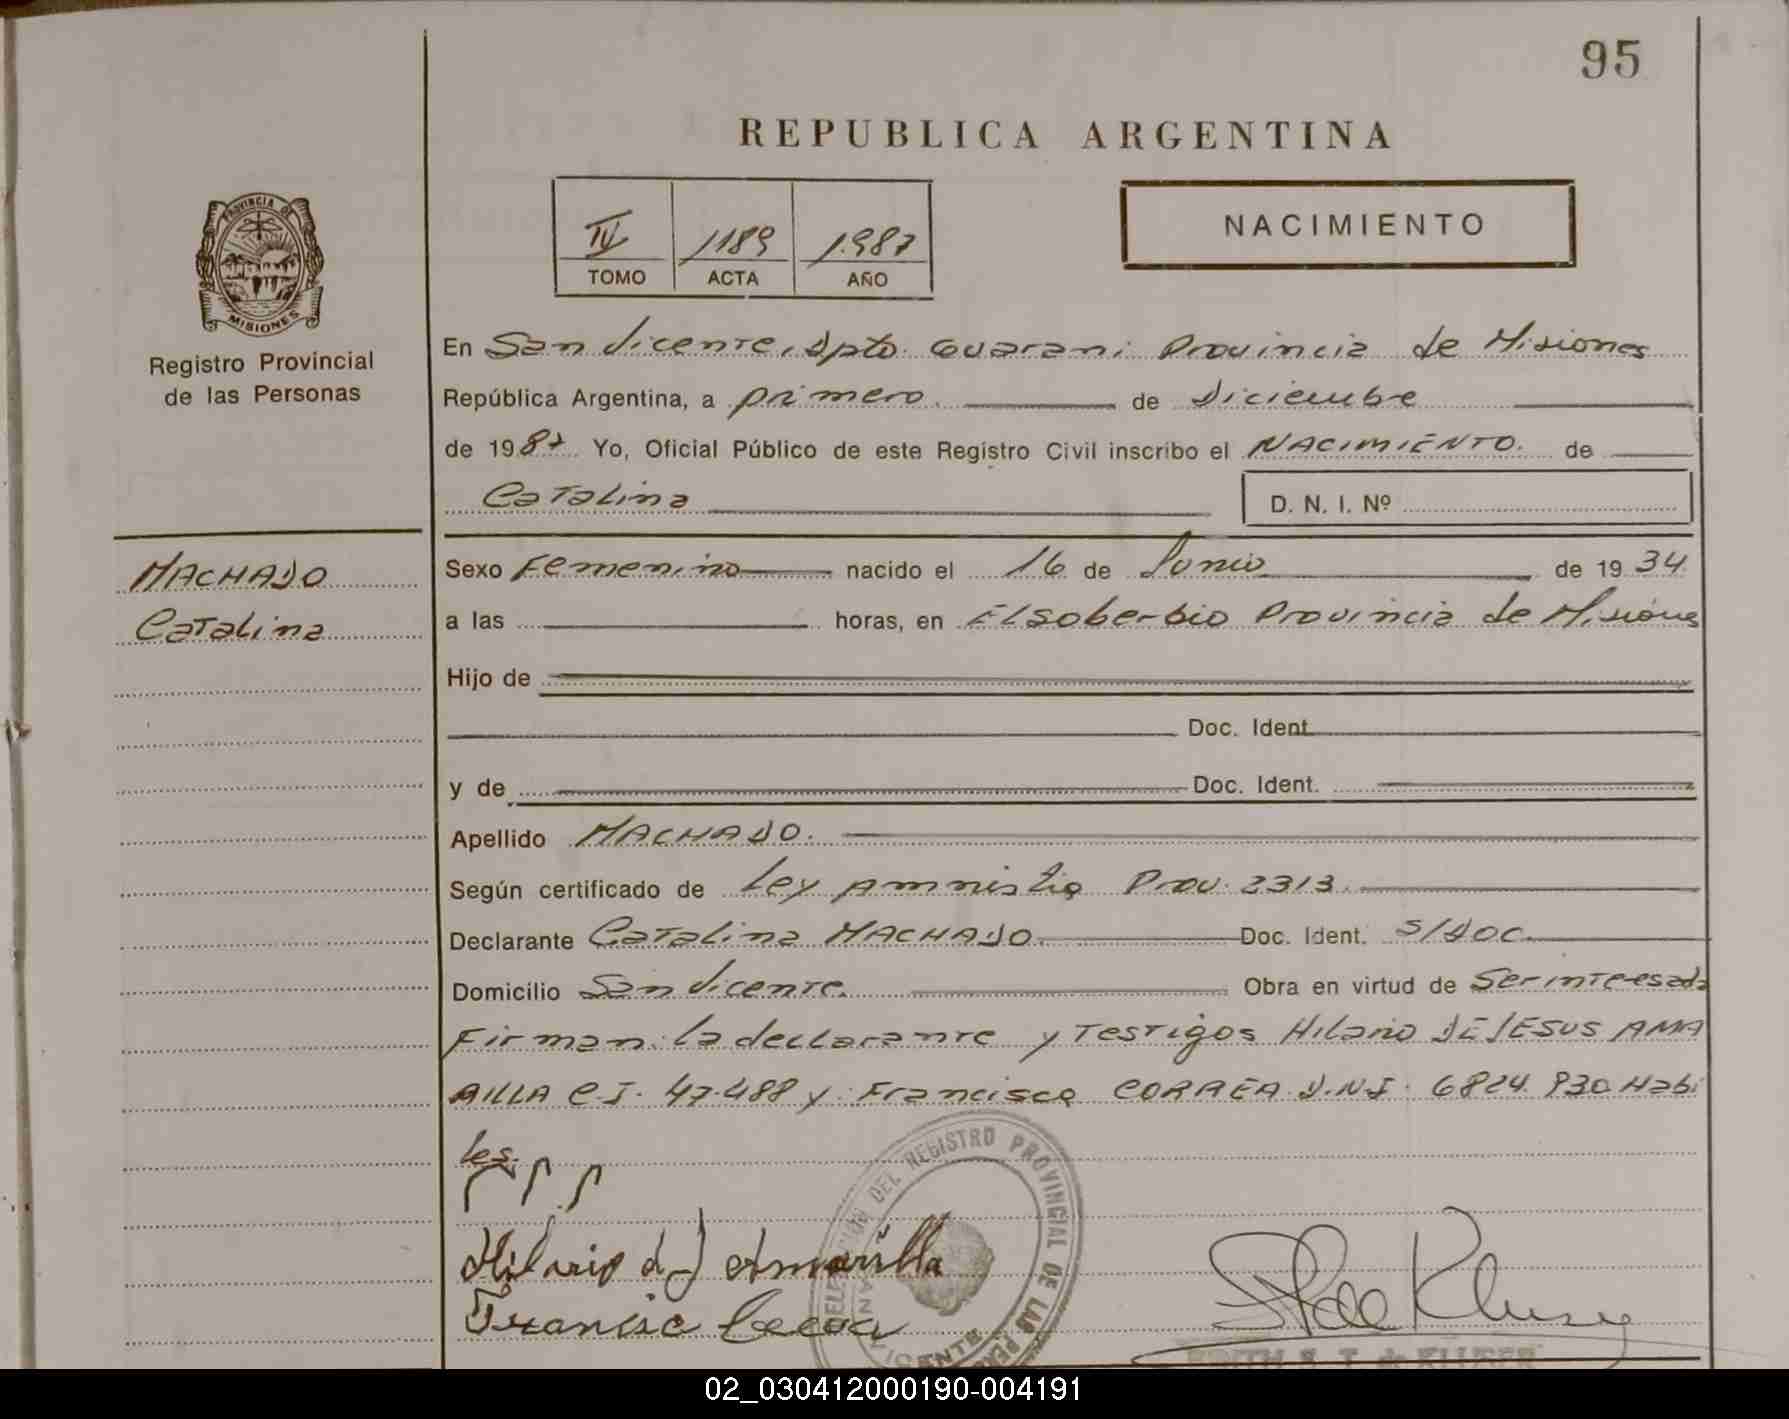 95
REPUBLICA ARGENTINA
PROVINCIA DE
MISIONES
Registro Provincial
de las Personas
IV 1189 1.987
TOMO ACTA AÑO
NACIMIENTO
En San Vicente, Dpto. Guarani Provincia de Misiones
República Argentina, a primero. de Diciembre
de 1987 Yo, Oficial Público de este Registro Civil inscribo el NACIMIENTO. de
Catalina D. N. I. Nº
MACHADO
Catalina
Sexo Femenino nacido el 16 de Junio de 1934
a las horas, en El Soberbio Provincia de Misiones
Hijo de
Doc. Ident.
y de Doc. Ident.
Apellido MACHADO.
Según certificado de Ley Amnistia Prov. 2313.
Declarante Catalina MACHADO Doc. Ident. S/DOC.
Domicilio San Vicente. Obra en virtud de Ser interesada
Firman la declarante y Testigos Hilario DE JESUS AMA
RILLA C.I. 47.488 y Francisco CORREA D.N.I. 6824.930 Habi
les.
DEL REGISTRO PROVINCIAL DE LAS
VICENTE
Hilario d J Amarilla
EDITH S. T. de KLUSER
02_030412000190-004191